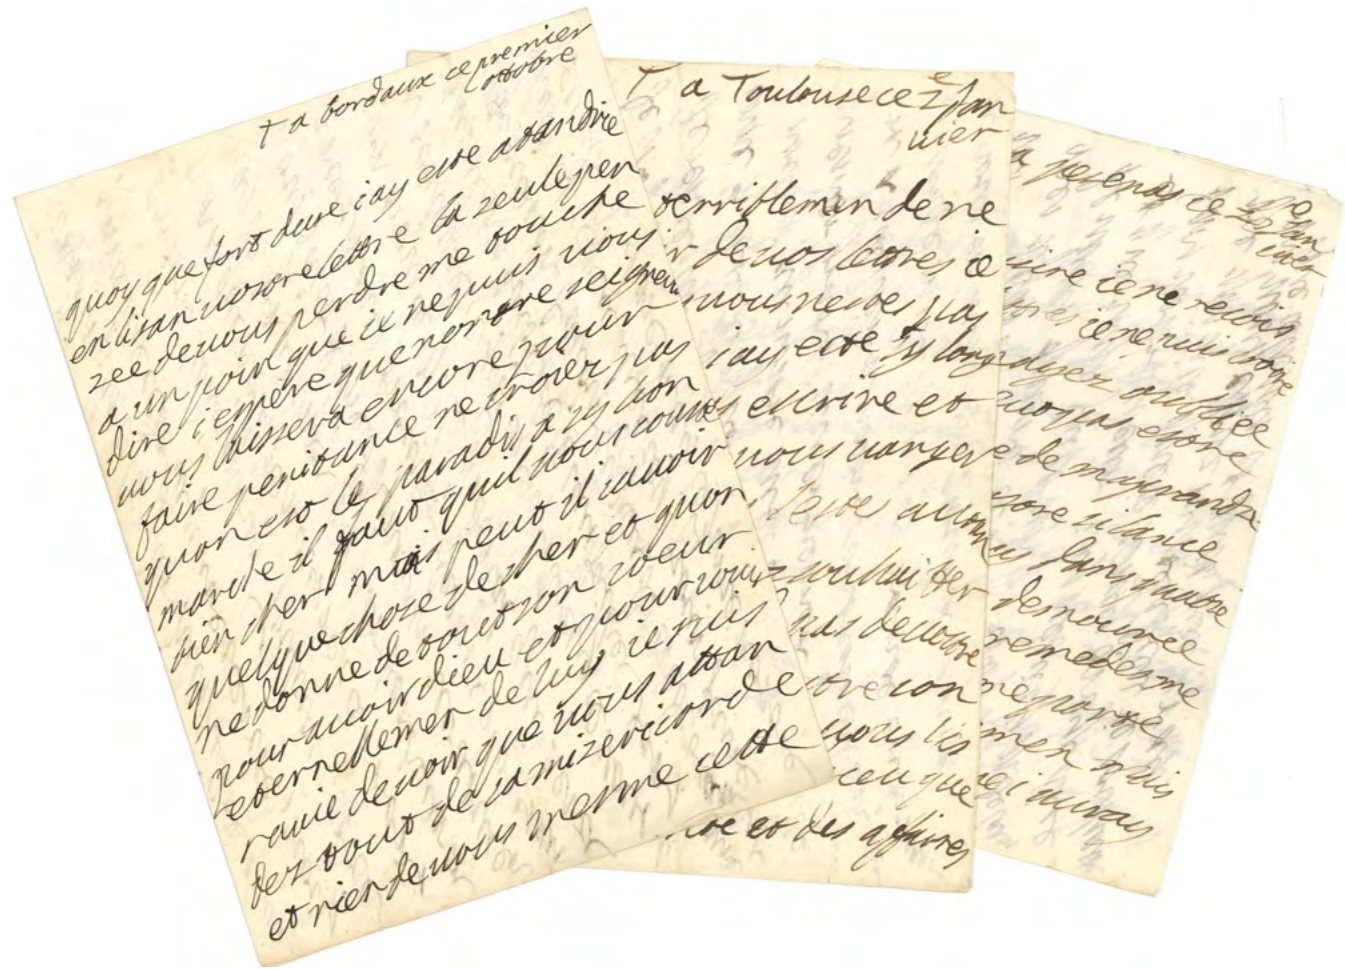 T a bordaux ce premier
ottobre
quoy que fort dure iay este atandrie
en lisan vostre lettre la seule pen
zee de vous perdre me touche
a un poin que ie ne puis vous
dire iespere que nostre seigneur
vous laissera encore pour
faire penitance ne croiez pas
quon est le paradis a sy bon
marche il faut quil nous couste
bien cher mais peut il i avoir
quelque chose de cher et quon
ne donne de tout son coeur
pour avoir dieu et pour iouir
eternellemen de luy ie suis
ravie de voir que vous attan
dez tout de sa misericorde
et rien de vous mesme cette
T a Toulouse ce 2e Jan
vier
terriblemen de ne
de vos lettres ie
vous nestes pas
iay este sy lon
escrire et
vous vanger
souhaitter
pas de vostre
stre con
vous lis
ceu que
et des affaires
a pesenas ce
Jan
vier
ie ne recois
ie ne puis croire
oubliee
estre
de ma grande
silance
dans quatre
demouree
remedes me
porte
men mais
iaurais